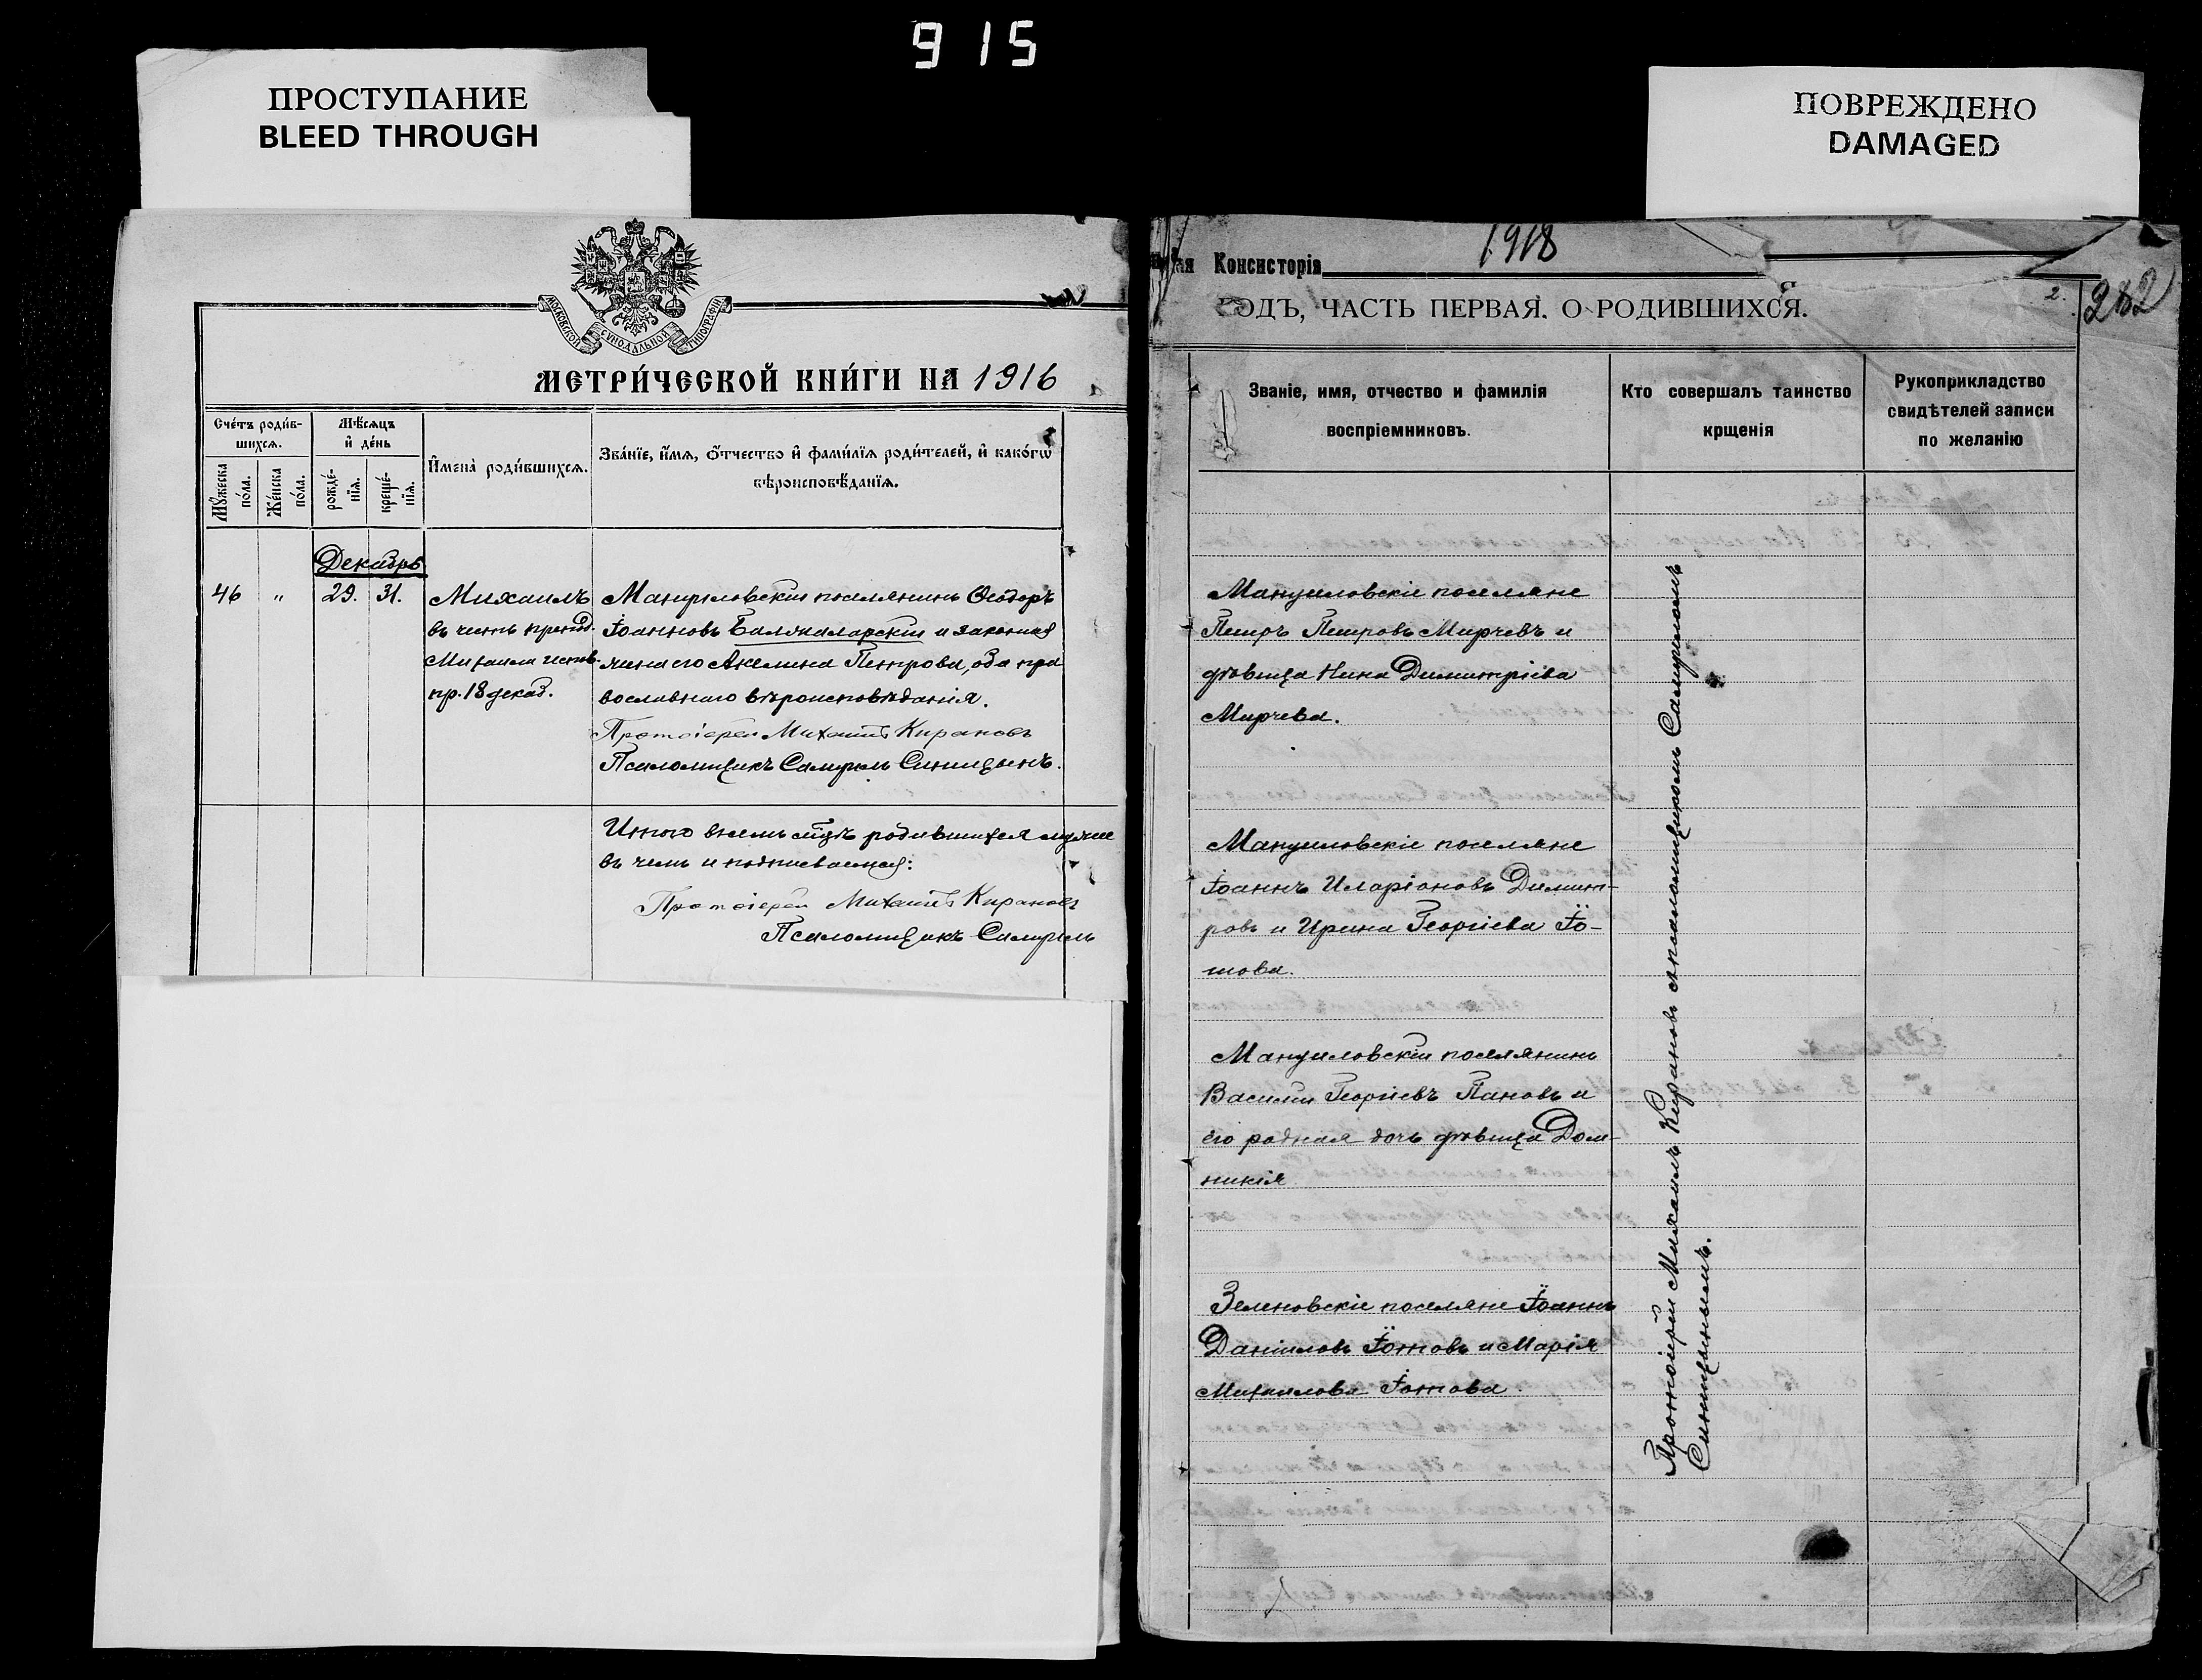 915
ПРОСТУПАНИЕ
BLEED THROUGH
ПОВРЕЖДЕНО
DAMAGED
МОСКОВСКОЙ СѴНОДАЛЬНОЙ ТИПОГРАФІИ
МЕТРИ́ЧЕСКОЙ КНИ́ГИ НА 1916
Сче́тъ роди́в-
шихся.
Мѣ́сяцъ
и҆ де́нь
Мꙋ́жеска
по́ла.
Же́нска
по́ла.
рожде́-
нїѧ.
креще́-
нїѧ.
И҆мена̀ роди́вшихся.
Зва́нїе, и҆́мѧ, ѻ҆́тчество и҆ фами́лїѧ роди́телей, и҆ како́гѡ
вѣроисповѣ́данїѧ.
Декабрь
46 " 29. 31.
Михаилъ
въ честь препод.
Михаила испов.
пр. 18 декаб.
Мануиловскій поселянинъ Ѳеодоръ
Іоанновъ Балжаларскій и законная
жена его Акелина Петрова, оба пра
вославнаго вѣроисповѣданія.
Протоіерей Михаилъ Кирановъ
Псаломщикъ Самуилъ Синицынъ.
Итого въ семъ мѣсяцѣ родившихся мужес
въ чемъ и подписываемся:
Протоіерей Михаилъ Кирановъ
Псаломщикъ Самуилъ
ая Консисторія 1918
ГОДЪ, ЧАСТЬ ПЕРВАЯ. О РОДИВШИХСЯ.
2.
282
Званіе, имя, отчество и фамилія
воспріемниковъ.
Кто совершалъ таинство
крщенія
Рукоприкладство
свидѣтелей записи
по желанію
Мануиловскіе поселяне
Петръ Петровъ Мирчевъ и
дѣвица Нина Димитріева
Мирчева.
Мануиловскіе поселяне
Іоаннъ Иларіоновъ Димит-
ровъ и Ирина Георгіева Іо-
това.
Мануиловскій поселянинъ
Василій Георгіевъ Пановъ и
его родная дочь дѣвица Дом-
никія
Зеленовскіе поселяне Іоаннъ
Даніиловъ Іотовъ и Марія
Михаилова Іотова.
Протоіерей Михаилъ Кирановъ съ псаломщикомъ Самуиломъ
Синицынымъ.